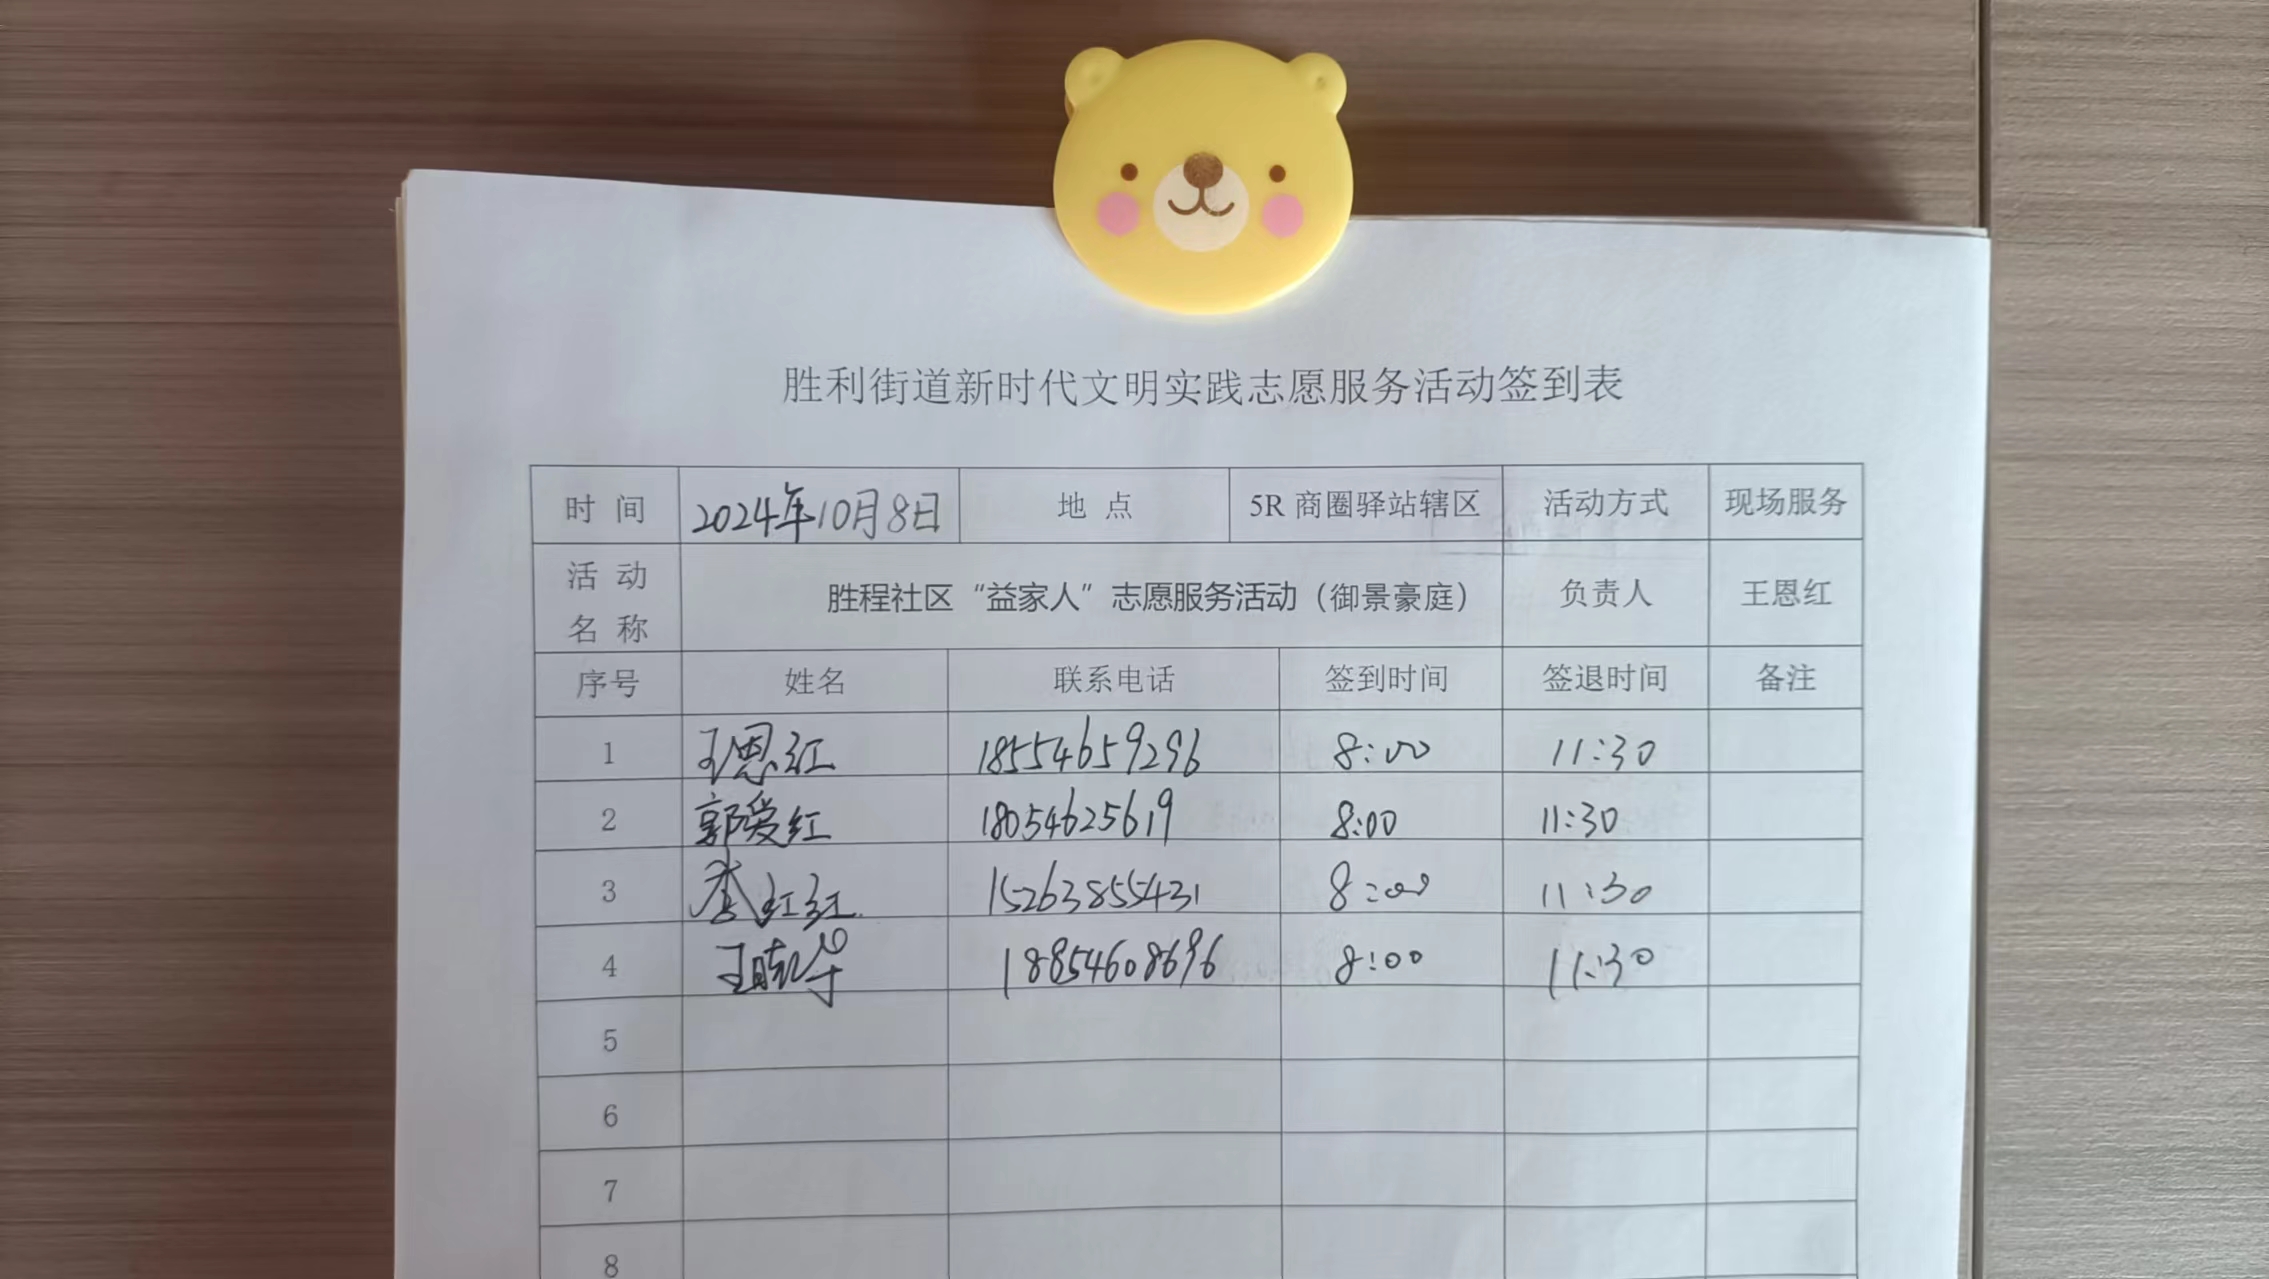 胜利街道新时代文明实践志愿服务活动签到表
时 间 2024年10月8日 地 点 5R 商圈驿站辖区 活动方式 现场服务
活 动
名 称 胜程社区“益家人”志愿服务活动（御景豪庭） 负责人 王恩红
序号 姓名 联系电话 签到时间 签退时间 备注
1 王恩红 18554659296 8:00 11:30
2 郭爱红 18054625619 8:00 11:30
3 李红红 15263855431 8:00 11:30
4 18854608696 8:00 11:30
5
6
7
8